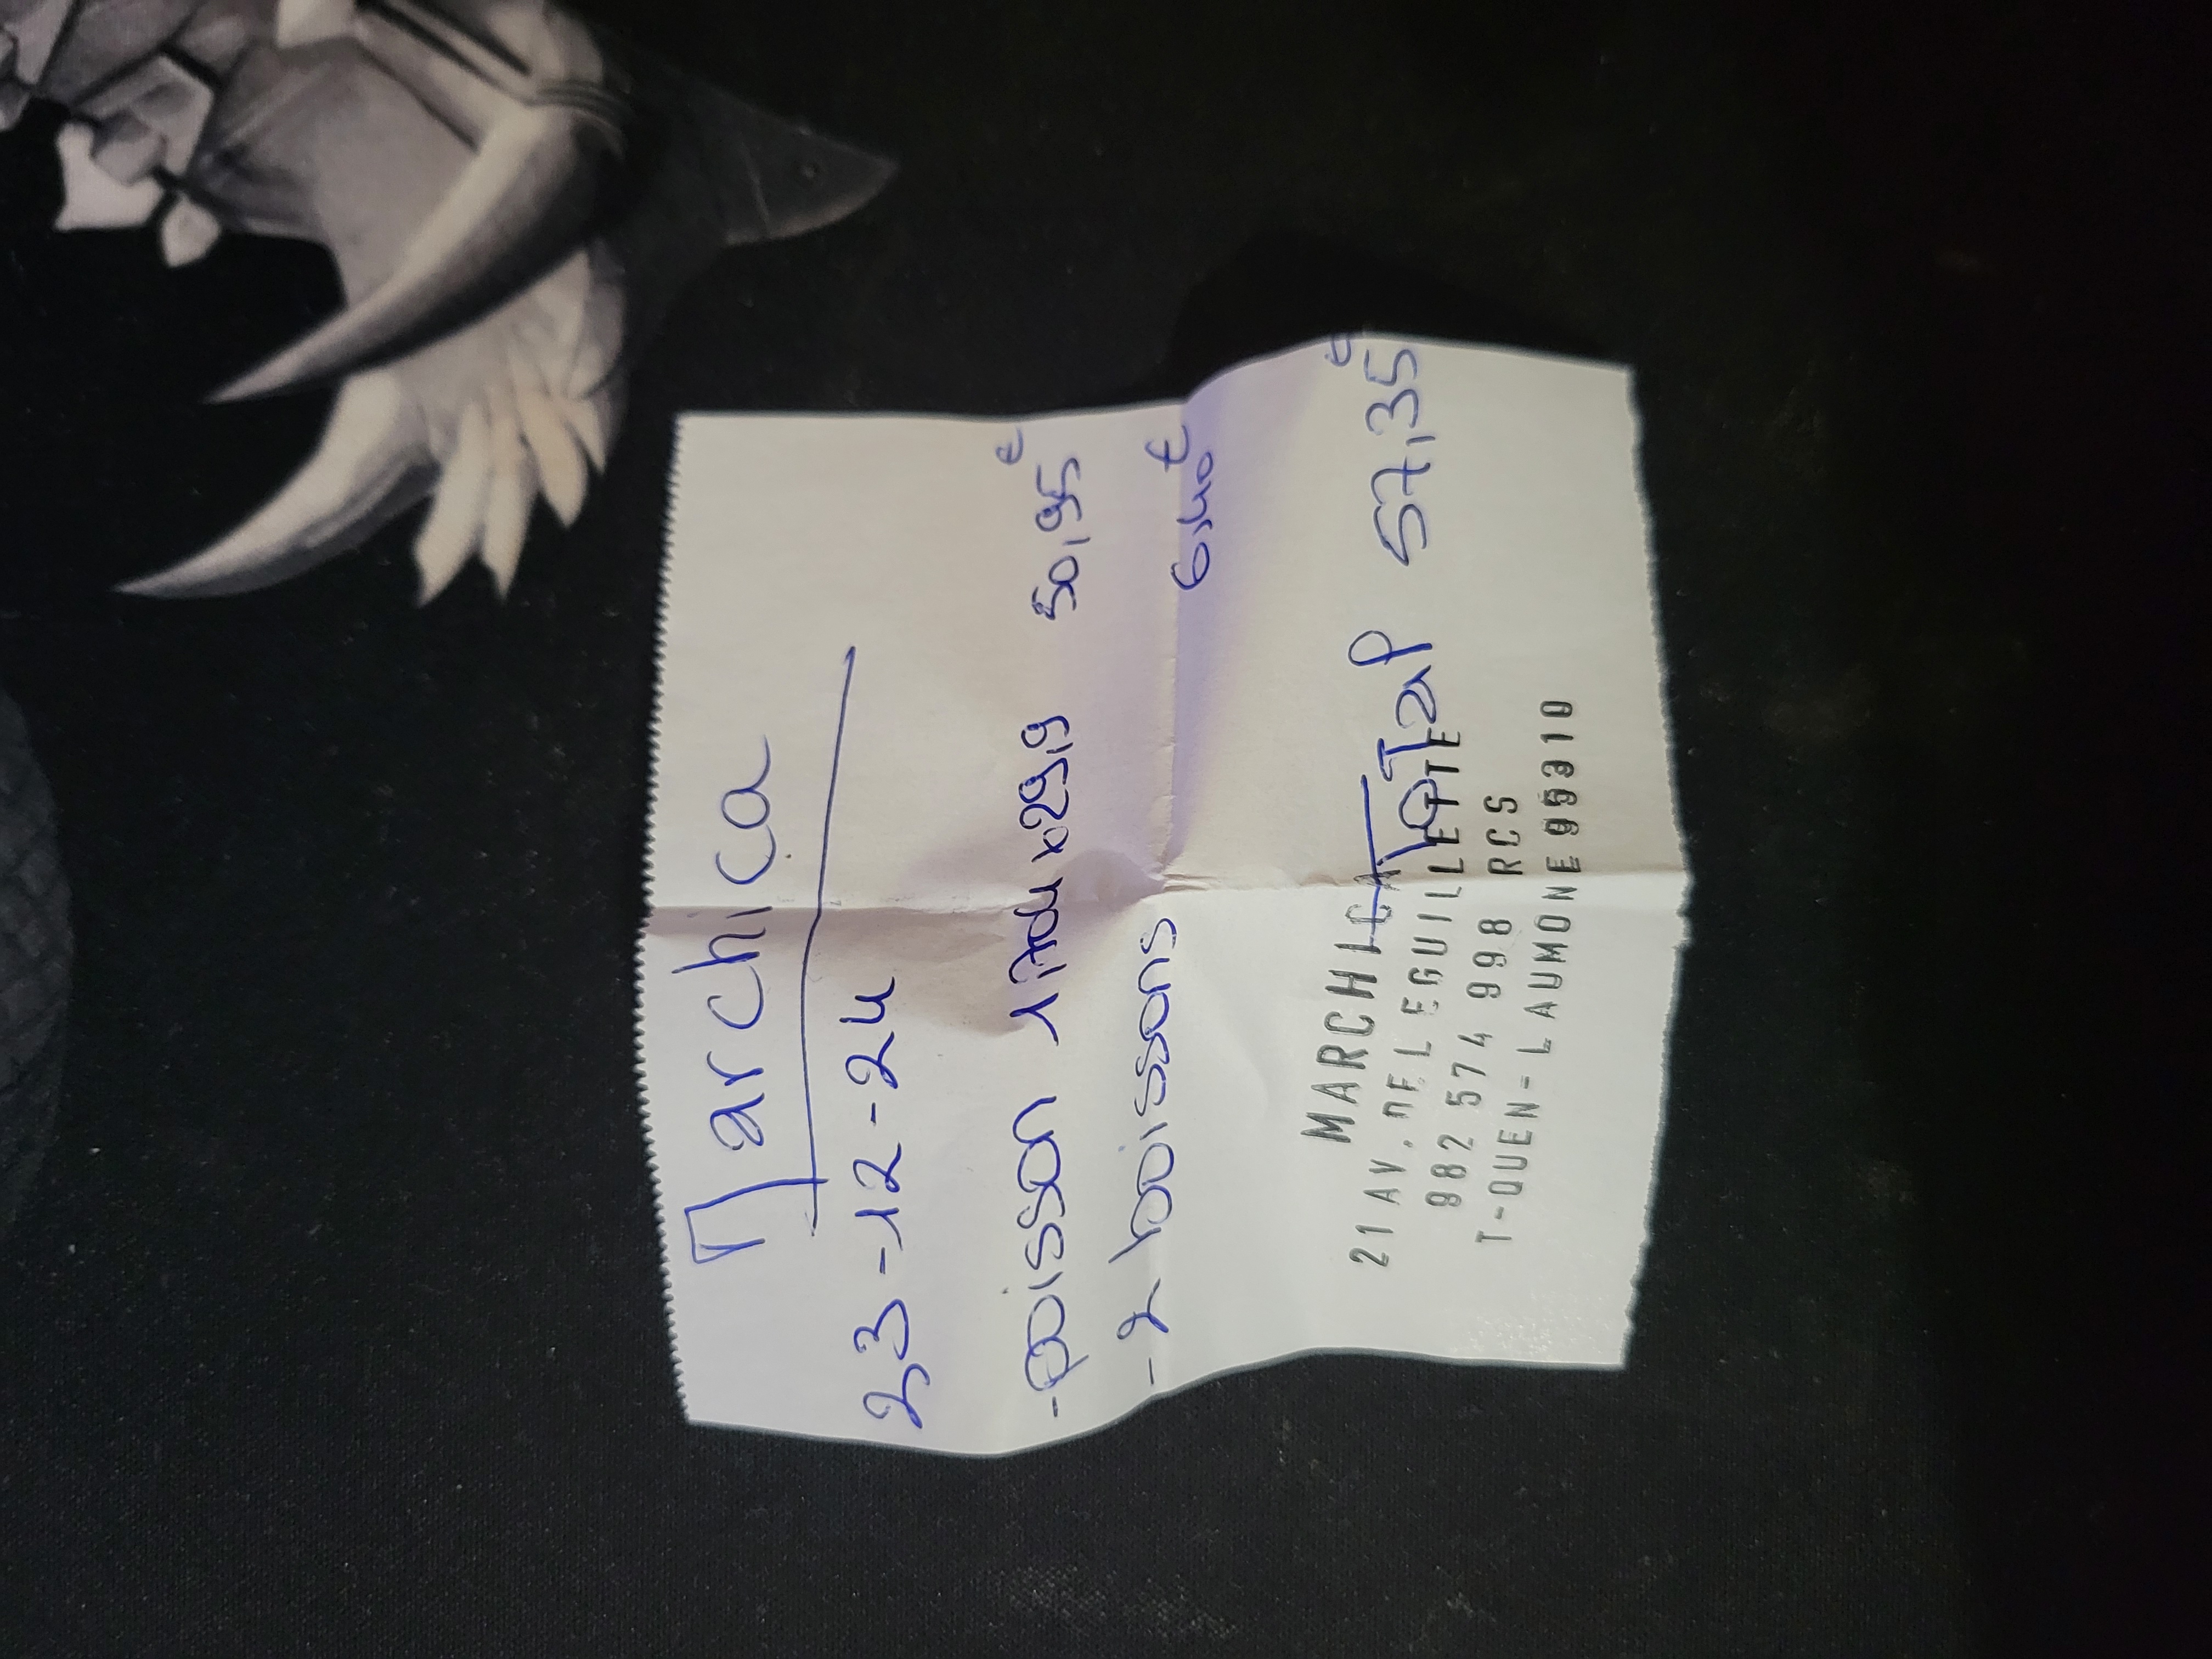 Marchica
23-12-24
-poisson 1,704 x 29,9 50,95€
-2 boissons 6,40€
MARCHICA
Total 57,35€
21 AV. DE L EGUILLETTE
982 574 998 RCS
T-OUEN-LAUMONE 95310